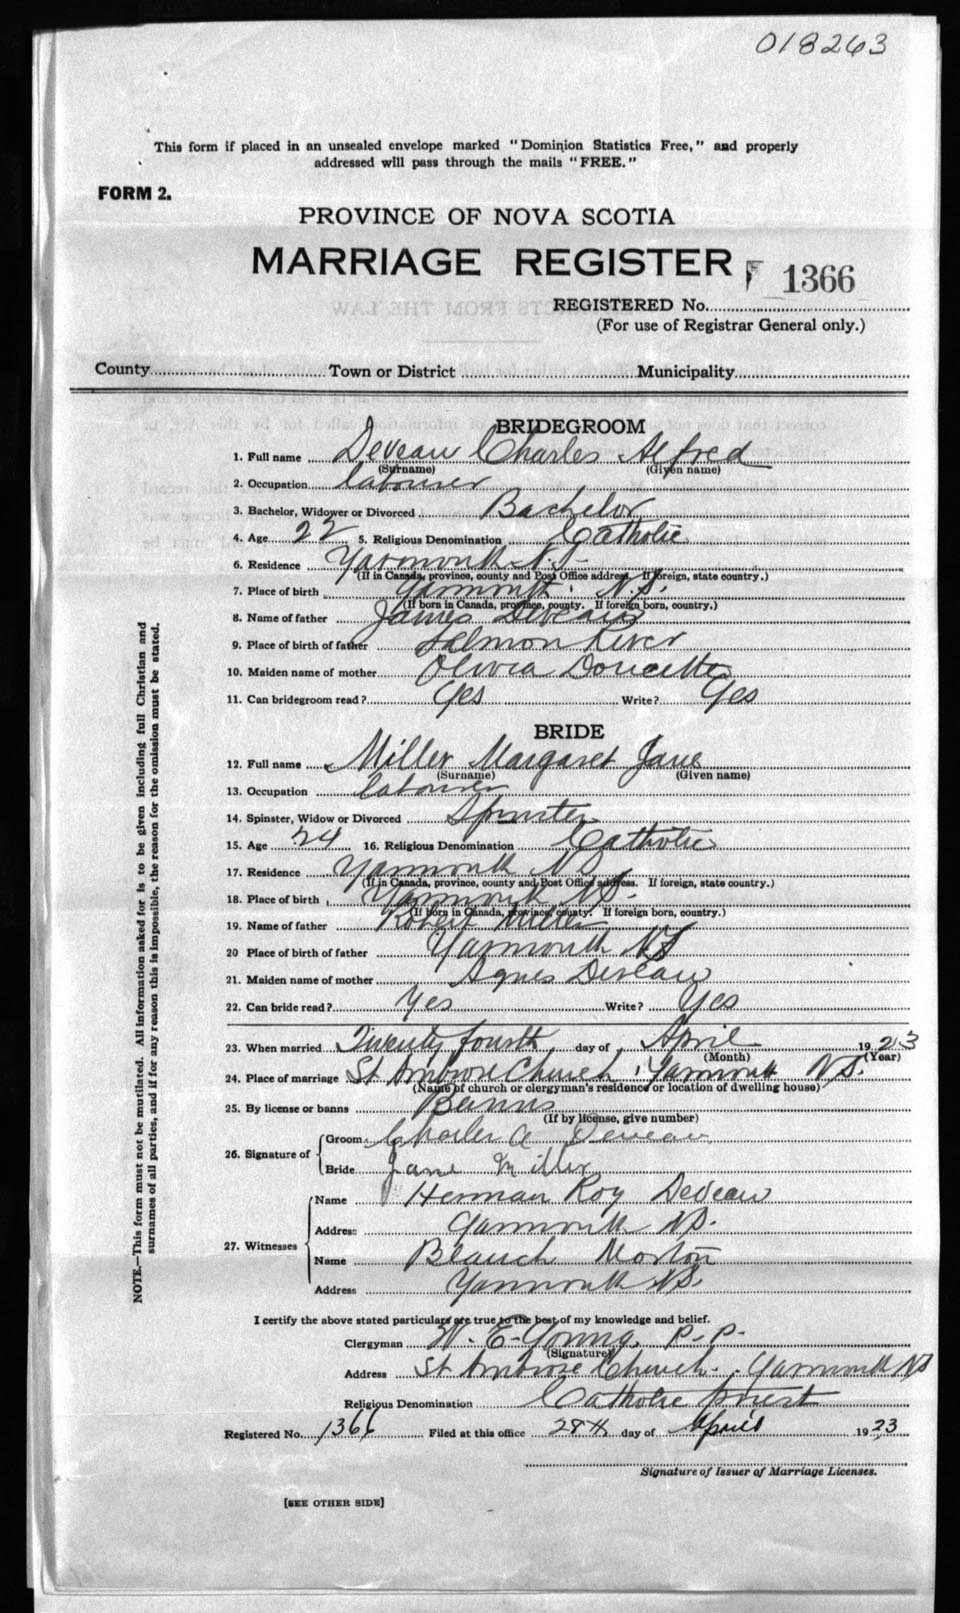 018263
This form if placed in an unsealed envelope marked "Dominion Statistics Free," and properly
addressed will pass through the mails "FREE."
FORM 2.
PROVINCE OF NOVA SCOTIA
MARRIAGE REGISTER
1366
REGISTERED No.
(For use of Registrar General only.)
County Town or District Municipality
BRIDEGROOM
1. Full name Deveau Charles Alfred
(Surname) (Given name)
2. Occupation labourer
3. Bachelor, Widower or Divorced Bachelor
4. Age 22 5. Religious Denomination Catholic
6. Residence Yarmouth N.S.
(If in Canada, province, county and Post Office address. If foreign, state country.)
7. Place of birth Yarmouth. N.S.
(If born in Canada, province, county. If foreign born, country.)
8. Name of father James Deveau
9. Place of birth of father Salmon River
10. Maiden name of mother Olivia Doucette
11. Can bridegroom read? Yes Write? Yes
BRIDE
12. Full name Miller Margaret Jane
(Surname) (Given name)
13. Occupation labourer
14. Spinster, Widow or Divorced Spinster
15. Age 24 16. Religious Denomination Catholic
17. Residence Yarmouth NS
(If in Canada, province, county and Post Office address. If foreign, state country.)
18. Place of birth Yarmouth N.S.
(If born in Canada, province, county. If foreign born, country.)
19. Name of father Robert Miller
20 Place of birth of father Yarmouth N.S
21. Maiden name of mother Agnes Deveau
22. Can bride read? Yes Write? Yes
23. When married Twenty fourth day of April 1923
(Month) (Year)
24. Place of marriage St Ambrose Church, Yarmouth N.S.
(Name of church or clergyman's residence or location of dwelling house)
25. By license or banns Banns
(If by license, give number)
26. Signature of
Groom Charles A Deveau
Bride Jane Miller
27. Witnesses
Name Herman Roy Deveau
Address Yarmouth N.S.
Name Blanch Morton
Address Yarmouth N.S.
I certify the above stated particulars are true to the best of my knowledge and belief.
Clergyman W. E. Young, P.P.
(Signature)
Address St Ambrose Church. Yarmouth NS
Religious Denomination Catholic priest
Registered No. 1366 Filed at this office 28th day of April 1923
Signature of Issuer of Marriage Licenses.
[SEE OTHER SIDE]
NOTE.—This form must not be mutilated. All information asked for is to be given including full Christian and
surnames of all parties, and if for any reason this is impossible, the reason for the omission must be stated.